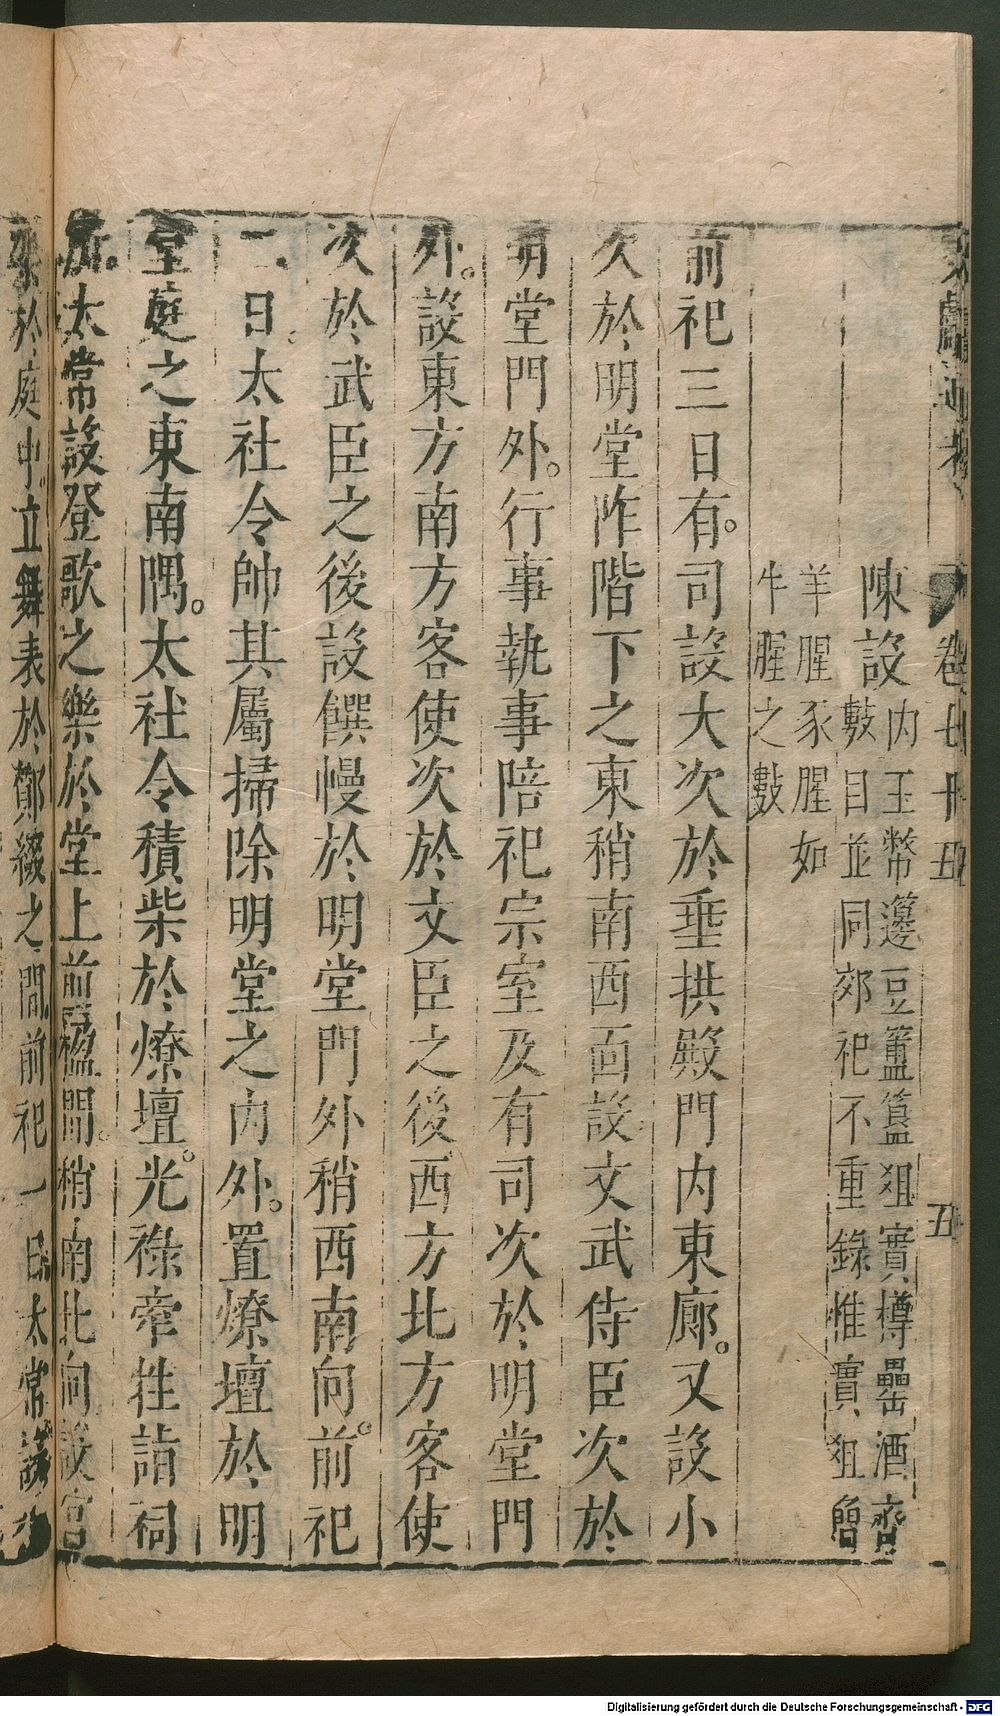 文獻通考 卷七十四 五
陳設内玉幣籩豆簠簋俎實樽罍酒齊
數目並同郊祀不重錄惟實俎簡
羊腥豕腥如
牛腥之數
前祀三日有司設大次於垂拱殿門内東廊又設小
次於明堂阼階下之東稍南西面設文武侍臣次於
明堂門外行事執事陪祀宗室及有司次於明堂門
外設東方南方客使次於文臣之後西方北方客使
次於武臣之後設饌幔於明堂門外稍西南向前祀
二日太社令帥其屬掃除明堂之内外置燎壇於明
堂庭之東南隅太社令積柴於燎壇光祿牽牲詣祠
所太常設登歌之樂於堂上前楹間稍南北向設宮
架於庭中立舞表於酇綴之間前祀一日太常設
Digitalisierung gefördert durch die Deutsche Forschungsgemeinschaft - DFG